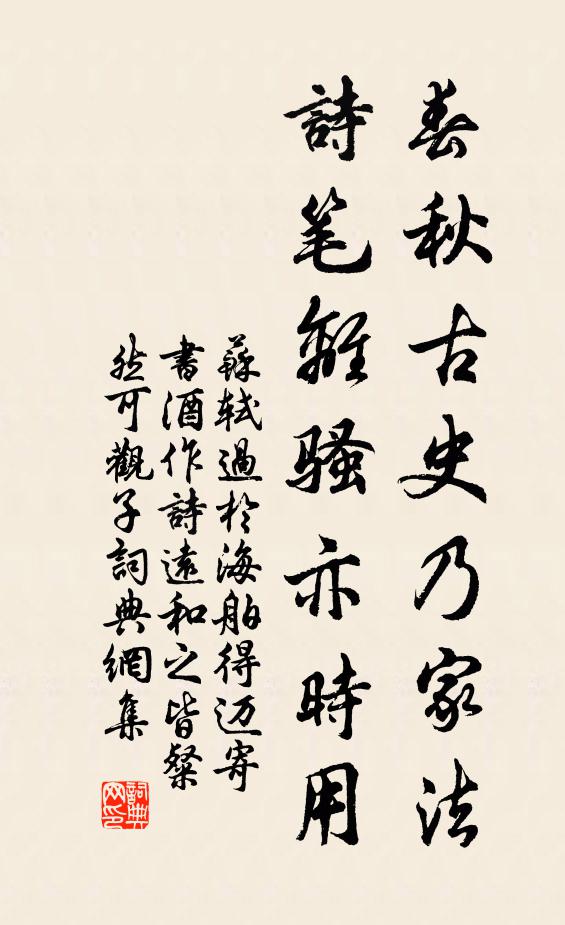 春秋古史乃家法
詩笔離騷亦時用
蘇軾過於海舶得迈寄
書酒作詩遠和之皆粲
然可觀子詞典網集
詞典
网印